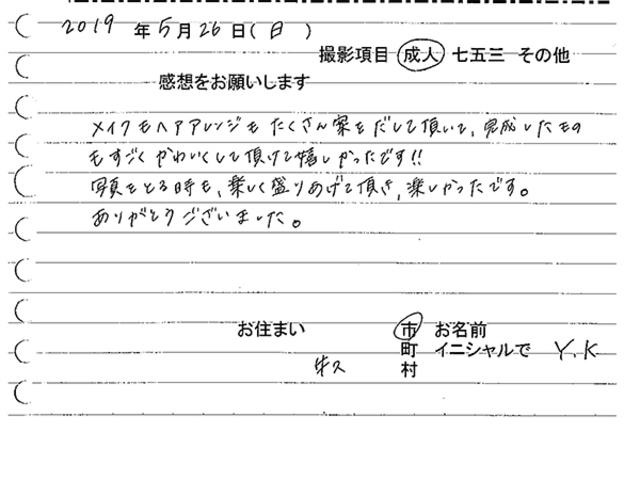 2019 年 5 月 26 日 ( 日 )
撮影項目 成人 七五三 その他
感想をお願いします
メイクもヘアアレンジも たくさん案をだして頂いて、完成したもの
もすごく かわいくして頂けて嬉しかったです!!
写真をとる時も、楽しく盛りあげて頂き、楽しかったです。
ありがとうございました。
お住まい 市 お名前
町 イニシャルで Y.K
村